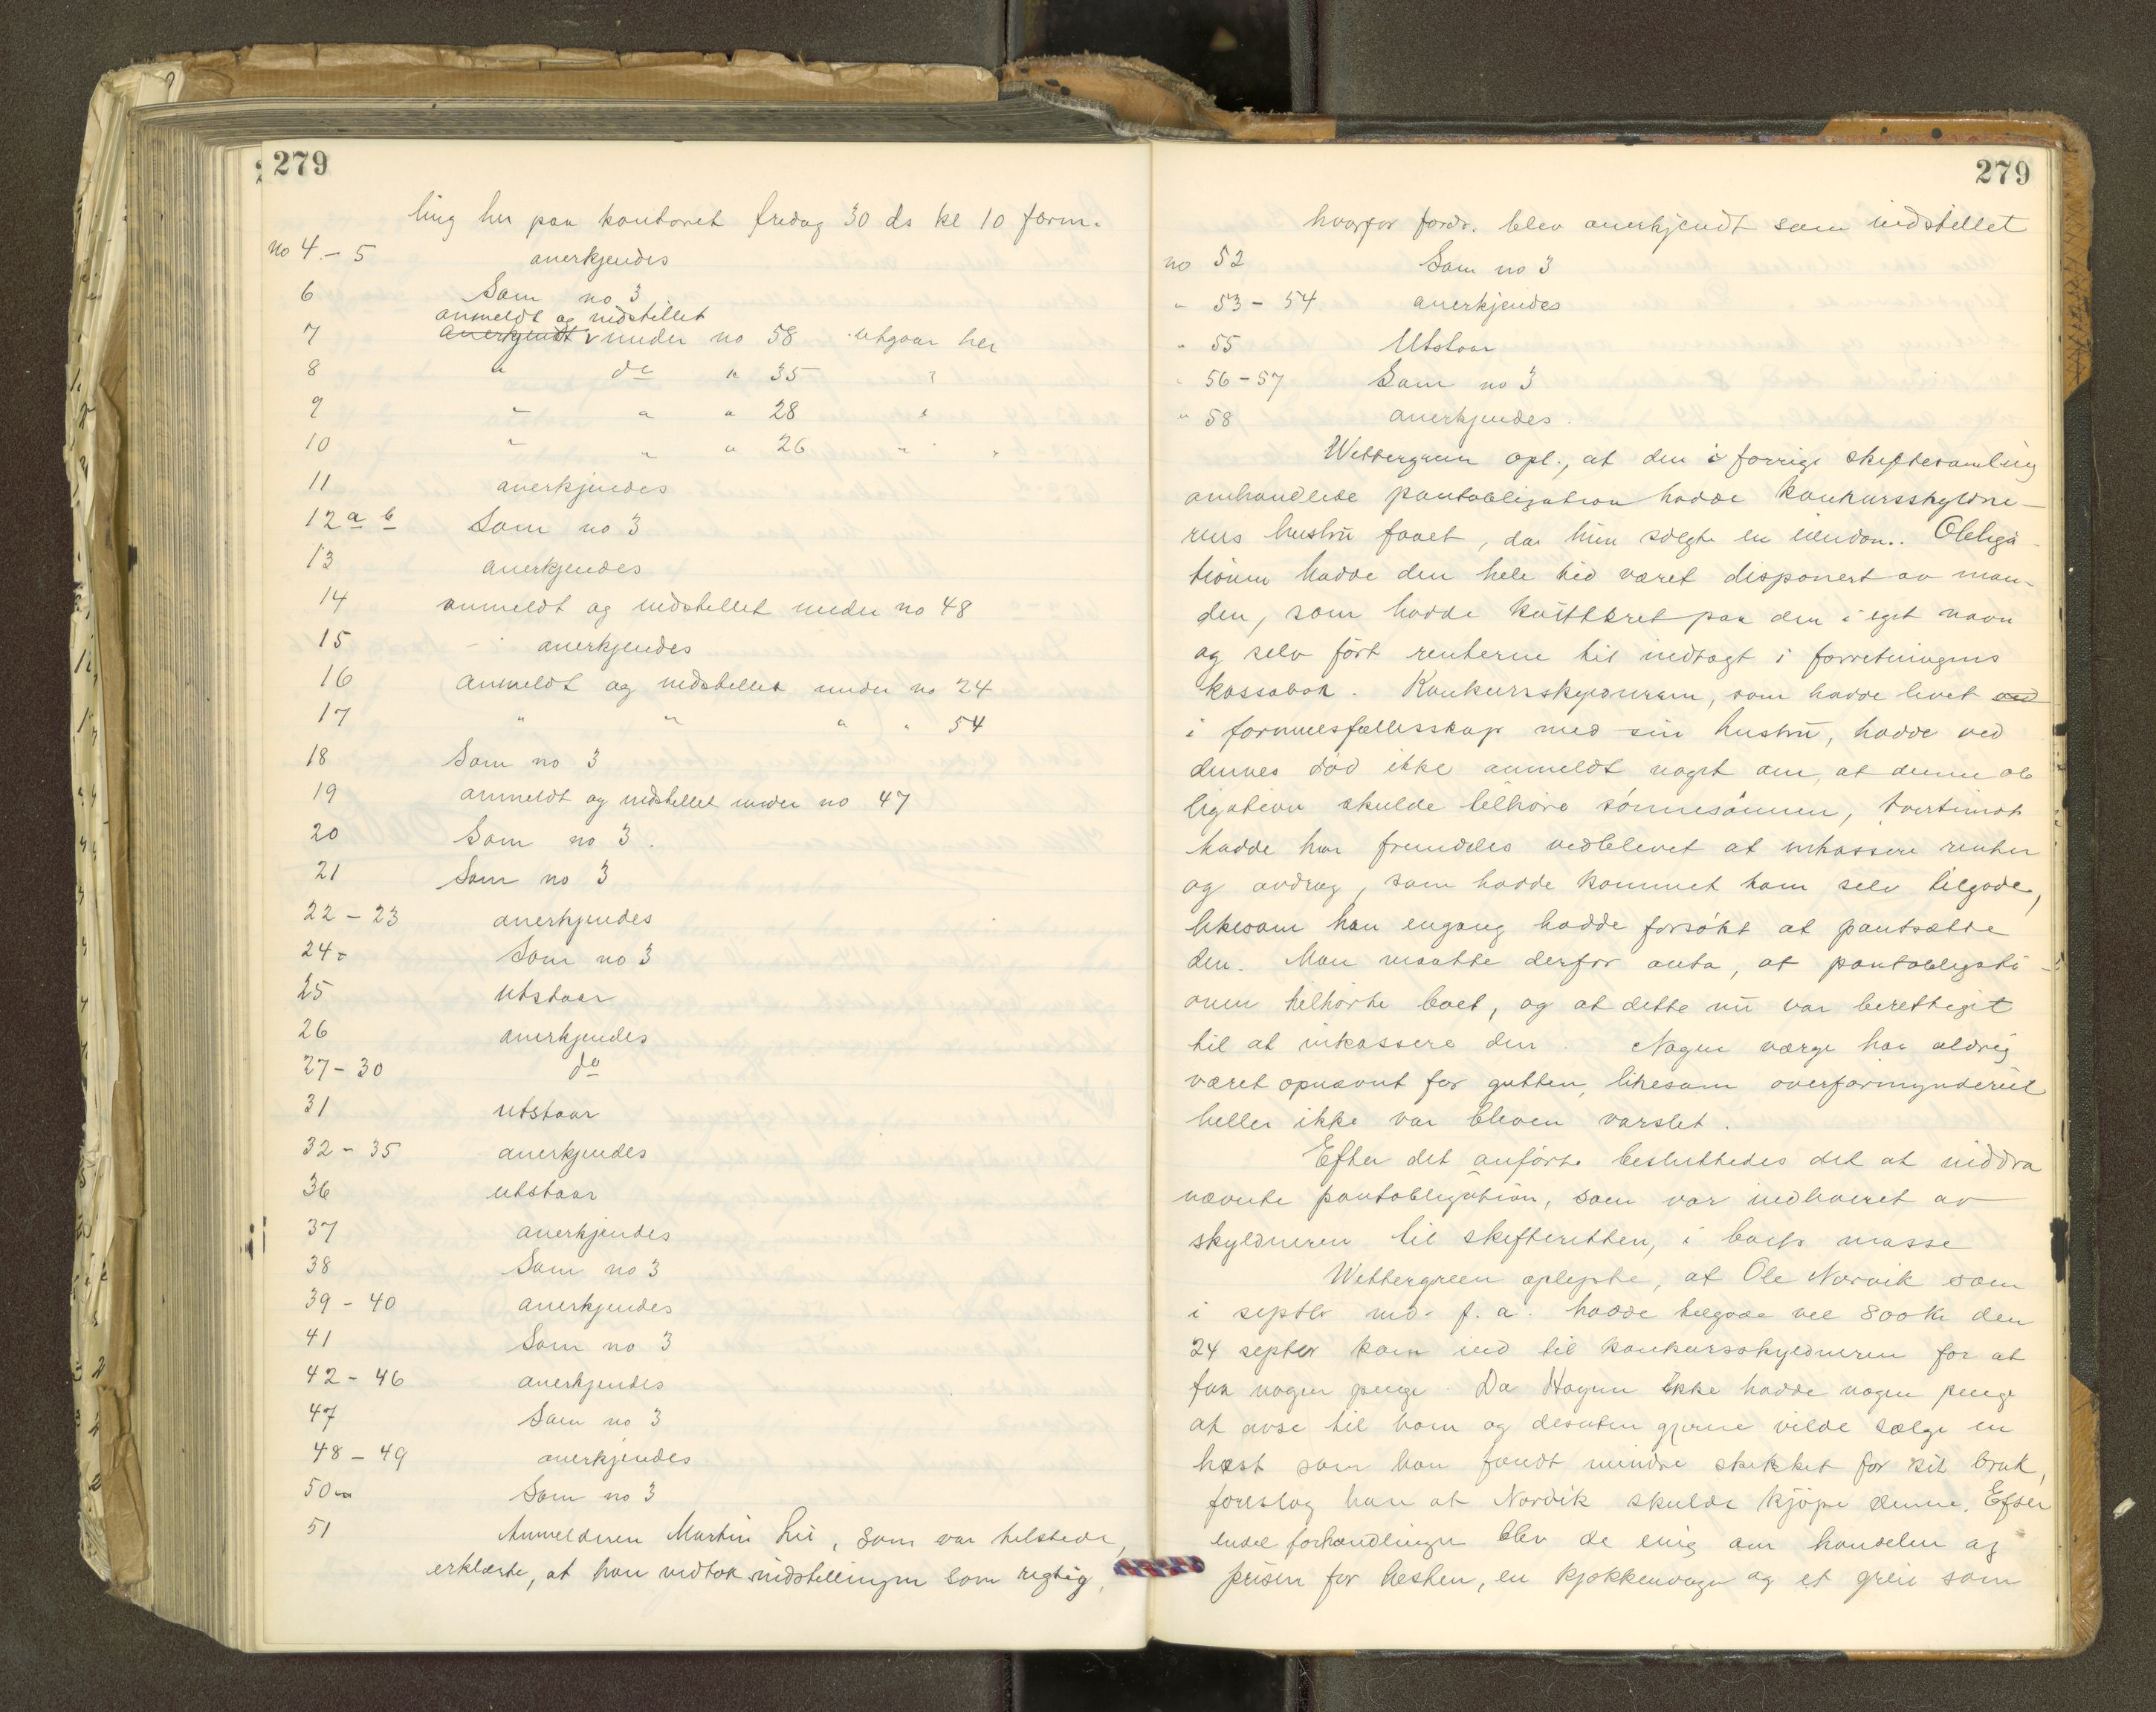 279
ling her paa kontoret fredag 30 ds kl 10 form.
no 4 - 5 anerkjendes
6 Som no 3
anmeldt og indstillet
7 anerkjendt under no 58 utgaar her
8 " do " 35 "
9 " " " 28 "
10 " " " 26 " "
11 anerkjendes
12 a b Som no 3
13 anerkjendes
14 anmeldt og indstillet under no 48
15 anerkjendes
16 anmeldt og indstillet under no 24
17 " " " " 54
18 Som no 3
19 anmeldt og indstillet under no 47
20 Som no 3.
21 Som no 3
22 - 23 anerkjendes
24 Som no 3
25 utstaar
26 anerkjendes
27 - 30 do
31 utstaar
32 - 35 anerkjendes
36 utstaar
37 anerkjendes
38 Som no 3
39 - 40 anerkjendes
41 Som no 3
42 - 46 anerkjendes
47 Som no 3
48 - 49 anerkjendes
50 Som no 3
51 Anmelderen Martin Lie, som var tilstede,
erklærte, at han vedtok indstillingen som rigtig,
279
hvorfor fordr. blev anerkjendt som indstillet
no 52 Som no 3
" 53 - 54 anerkjendes
" 55 Utstaar
" 56 - 57 Som no 3
" 58 anerkjendes.
Wettergreen opl., at den i forrige skiftesamling
omhandlede pantobligation hadde konkursskyldne-
rens hustru faaet, da hun solgte en eiendom. Obliga-
tionen hadde den hele tid været disponert av man-
den, som hadde kvittert paa den i eget navn
og selv ført renterne til indtægt i forretningens
kassabok. Konkursskyldneren, som hadde levet ved
i formuesfællesskap med sin hustru, hadde ved
dennes død ikke anmeldt noget om, at denne ob
ligation skulde tilhøre sønnesønnen, tvertimot
hadde han fremdeles vedblevet at inkassere renter
og avdrag, som hadde kommet ham selv tilgode,
likesom han engang hadde forsøkt at pantsætte
den. Man maatte derfor anta, at pantobligati-
onen tilhørte boet, og at dette nu var berettiget
til at inkassere den. Nogen værge har aldrig
været opnævnt for gutten, likesom overformynderiet
heller ikke var bleven varslet.
Efter det anførte besluttedes det at inddra
nævnte pantobligation, som var indleveret av
skyldneren til skifteretten, i boets masse
Wettergreen oplyste, at Ole Norvik som
i septbr md. f. a. hadde tilgode vel 800 kr den
24 septbr kom ind til konkursskyldneren for at
faa nogen penge. Da Hagen ikke hadde nogen penge
at avse til ham og desuten gjerne vilde sælge en
hest som han fandt mindre skikket for sit bruk,
foreslog han at Norvik skulde kjøpe denne. Efter
endel forhandlinger blev de enig om handelen og
prisen for hesten, en kjøkkenvogn og et greie som